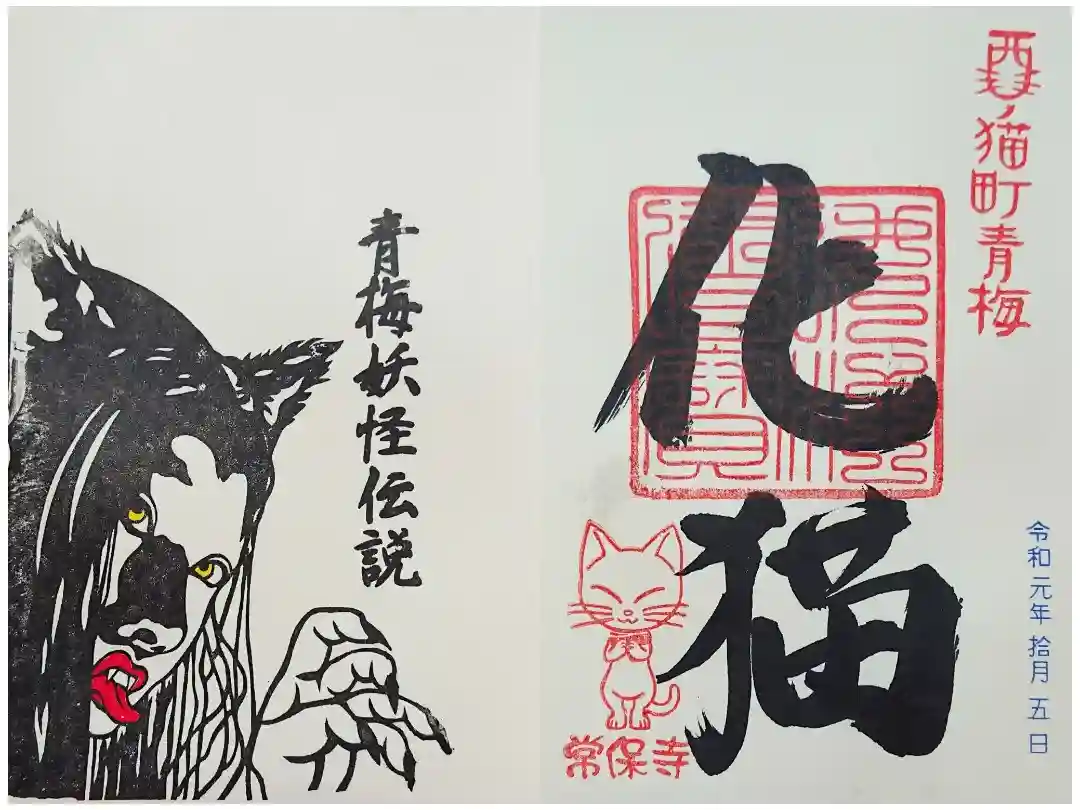 ノ猫町青梅
化猫
令和元年 拾月 五 日
常保寺
青梅妖怪伝説